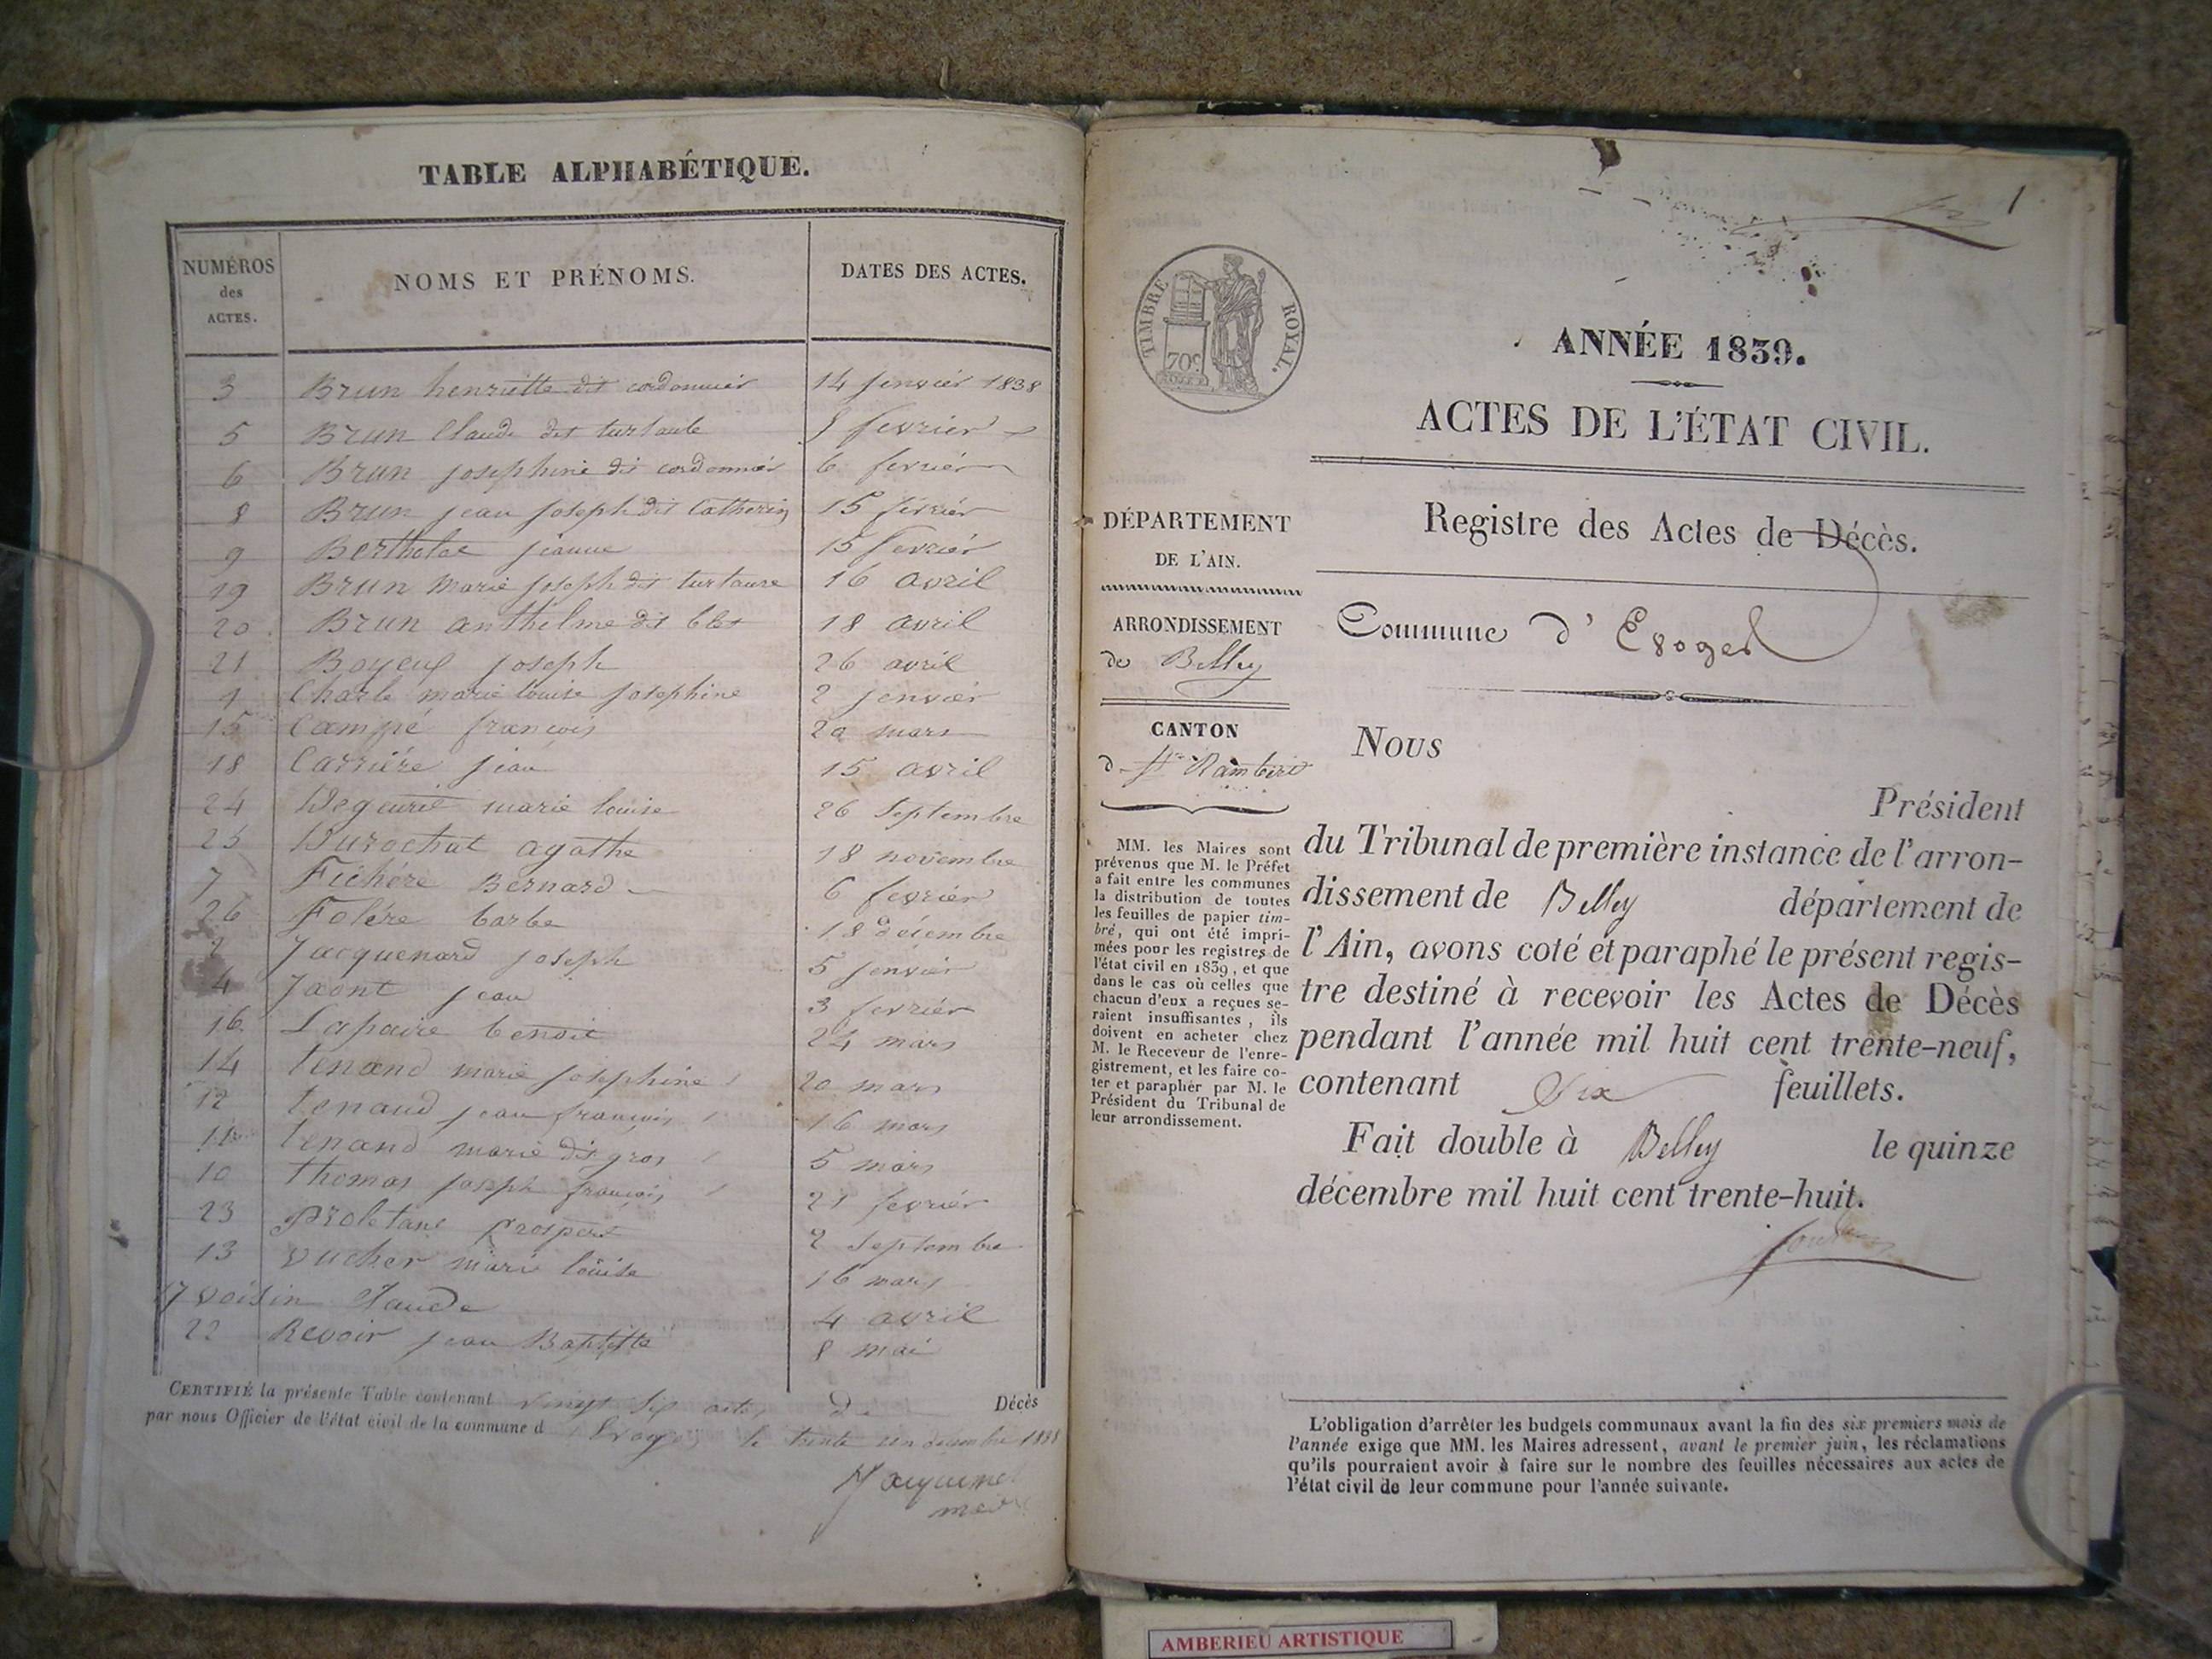 TABLE ALPHABÉTIQUE.
NUMÉROS des ACTES. NOMS ET PRÉNOMS. DATES DES ACTES.
3 Brun henriette dit cordonnier 14 jenvier 1838
5 Brun Claude dit fevrier
6 Brun josephine dit cordonnier 6 fevrier
8 Brun jean joseph dit Catherin 15 fevrier
9 jeanne 15 fevrier
19 Brun marie joseph dit 16 avril
20 Brun anthelme dit 18 avril
21 joseph 26 avril
1 Charle marie louise josephine 2 jenvier
15 Campé françois mars
18 Carriére jean 15 avril
24 marie louise 26 Septembre
25 Durochat agathe 18 novembre
7 Fichére Bernard 6 fevrier
26 Folére barbe 18 décembre
2 Jacquenard joseph 5 jenvier
4 jean 3 fevrier
16 Lapaire benoit 24 mars
14 tenand marie josephine 20 mars
12 tenand jean françois 16 mars
11 tenand marie dit gros 5 mars
10 thomas joseph françois 21 fevrier
23 Proletane prosper 2 Septembre
13 vucher marie louise 16 mars
17 voisin Claude 4 avril
22 Revoir jean Baptiste 8 mai
CERTIFIÉ la présente Table contenant vingt six actes de Décès
par nous Officier de l'état civil de la commune d Evoges le trente un décembre 1838
maire
1
TIMBRE ROYAL.
70c
ANNÉE 1839.
ACTES DE L'ÉTAT CIVIL.
Registre des Actes de Décès.
Commune d'Evoges
DÉPARTEMENT
DE L'AIN.
ARRONDISSEMENT
de Belley
CANTON
de St Rambert
MM. les Maires sont
prévenus que M. le Préfet
a fait entre les communes
la distribution de toutes
les feuilles de papier tim-
bré, qui ont été impri-
mées pour les registres de
l'état civil en 1839, et que
dans le cas où celles que
chacun d'eux a reçues se-
raient insuffisantes, ils
doivent en acheter chez
M. le Receveur de l'enre-
gistrement, et les faire co-
ter et parapher par M. le
Président du Tribunal de
leur arrondissement.
Nous
Président
du Tribunal de première instance de l'arron-
dissement de Belley département de
l'Ain, avons coté et paraphé le présent regis-
tre destiné à recevoir les Actes de Décès
pendant l'année mil huit cent trente-neuf,
contenant Six feuillets.
Fait double à Belley le quinze
décembre mil huit cent trente-huit.
L'obligation d'arrêter les budgets communaux avant la fin des six premiers mois de
l'année exige que MM. les Maires adressent, avant le premier juin, les réclamations
qu'ils pourraient avoir à faire sur le nombre des feuilles nécessaires aux actes de
l'état civil de leur commune pour l'année suivante.
AMBERIEU ARTISTIQUE